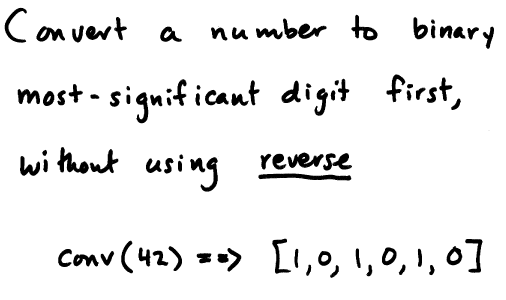 Convert a number to binary
most-significant digit first,
without using reverse
conv(42) ==> [1,0,1,0,1,0]